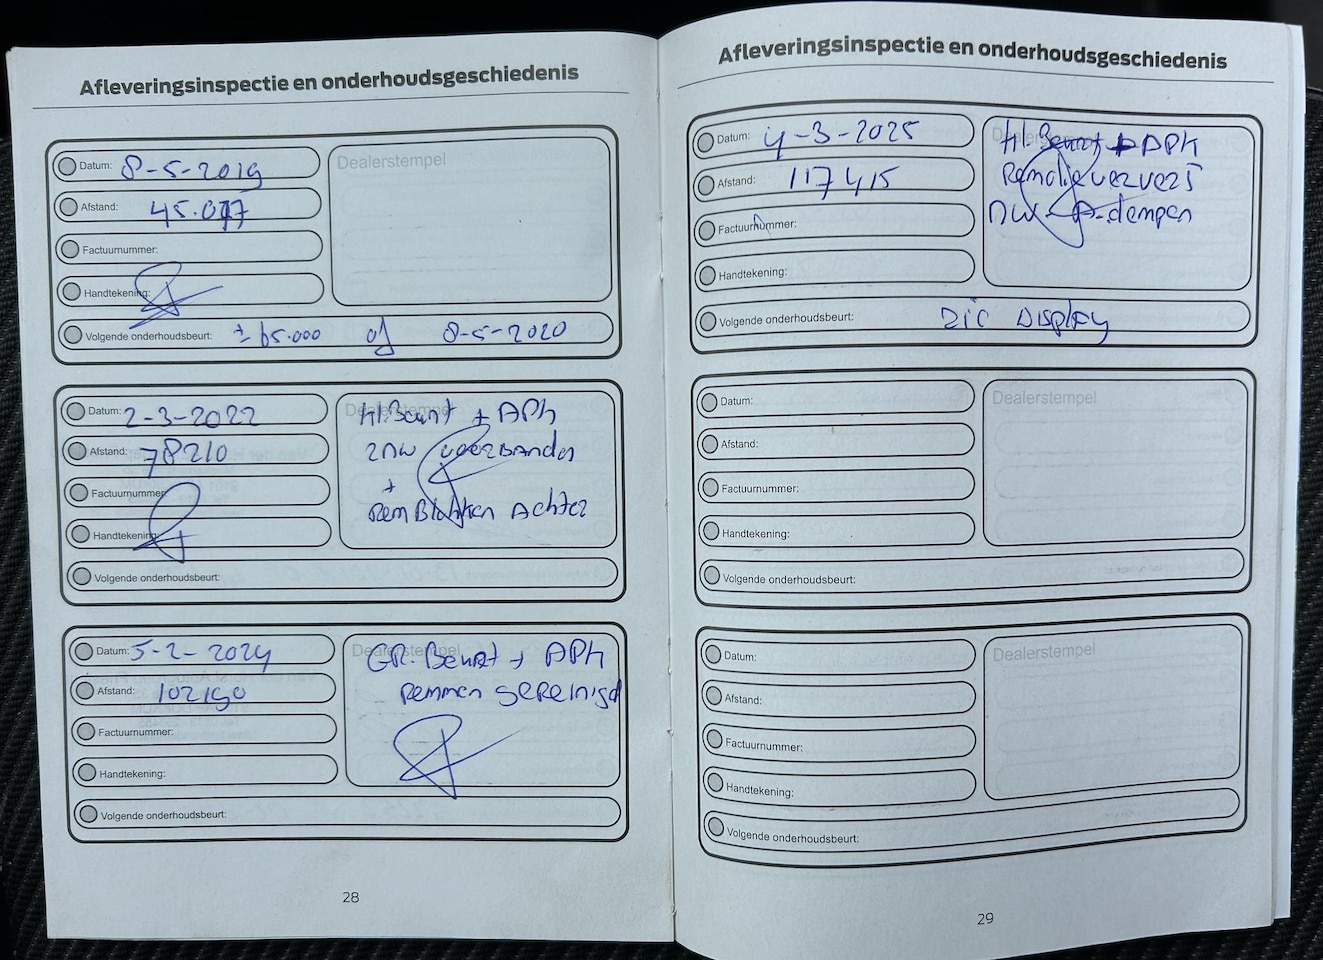 Afleveringsinspectie en onderhoudsgeschiedenis
Datum: 8-5-2019
Afstand: 45.077
Factuurnummer:
Handtekening:
Dealerstempel
Volgende onderhoudsbeurt: ± 65.000 of 8-5-2020
Datum: 2-3-2022
Afstand: 78210
Factuurnummer
Handtekening:
Dealerstempel
Kl. Beurt + APK
2 nw voorbanden
+
RemBlokken Achter
Volgende onderhoudsbeurt:
Datum: 5-2-2024
Afstand: 102190
Factuurnummer:
Handtekening:
Dealerstempel
GR. Beurt + APK
Remmen gereinigd
Volgende onderhoudsbeurt:
28
Afleveringsinspectie en onderhoudsgeschiedenis
Datum: 4-3-2025
Afstand: 117415
Factuurnummer:
Handtekening:
Dealerstempel
Kl. Beurt + APK
Remolie ververst
nw A-dempers
Volgende onderhoudsbeurt: Zie Display
Datum:
Afstand:
Factuurnummer:
Handtekening:
Dealerstempel
Volgende onderhoudsbeurt:
Datum:
Afstand:
Factuurnummer:
Handtekening:
Dealerstempel
Volgende onderhoudsbeurt:
29